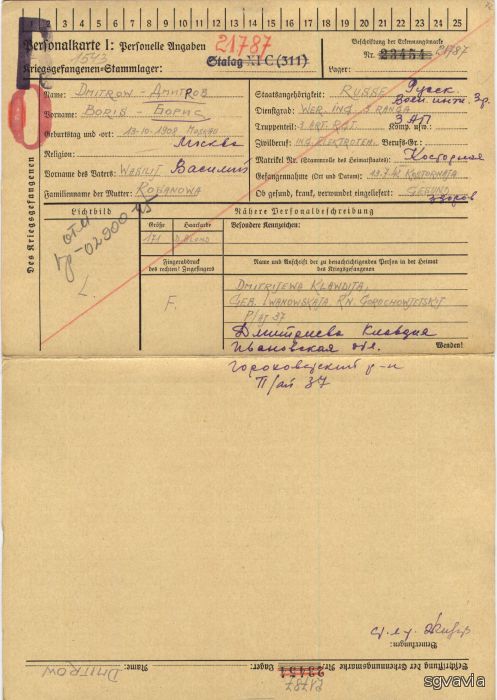 1 2 3 4 5 6 7 8 9 10 11 12 13 14 15 16 17 18 19 20 21 22 23 24 25
Personalkarte I: Personelle Angaben
21787
Beschriftung der Erkennungsmarke
1543
Stalag XI C (311)
Nr. 23454 21787
Kriegsgefangenen-Stammlager:
Lager:
Des Kriegsgefangenen
Name: DMITROW - ДМИТРОВ
Staatsangehörigkeit: RUSSE Русск.
Vorname: BORIS - БОРИС
Dienstgrad: WER. ING. 3 RANGA Воен. инж. 3 р.
Geburtstag und -ort: 13.10.1908 MOSKAU
Truppenteil: 3 ART. RGT. Komp. usw.: 3 АП
Москва
Religion:
Zivilberuf: ING. ELEKTROTEN. Berufs-Gr.:
Matrikel Nr. (Stammrolle des Heimatstaates):
Касторная
Vorname des Vaters: WASILIJ Василий
Gefangennahme (Ort und Datum): 13.7.42 KOSTORNAJA
Familienname der Mutter: ROBANOWA
Ob gesund, krank, verwundet eingeliefert: GESUND
здоров
Lichtbild
Nähere Personalbeschreibung
Größe Haarfarbe Besondere Kennzeichen:
171 D. BLOND
02900-45
L.
Fingerabdruck
des rechten! Zeigefingers
Name und Anschrift der zu benachrichtigenden Person in der Heimat
des Kriegsgefangenen
F.
DMITRIJEWA KLAWDIJA,
GEB. IWANOWSKAJA. RN. GOROCHOWJETSKIJ
P/JAT 37
Дмитриева Клавдия
Wenden!
Ивановская обл.
Гороховецкий р-н
П/ай 37
Bemerkungen:
Beschriftung der Erkennungsmarke Nr. 23454 Lager: Name: DMITROW
21787
sgvavia